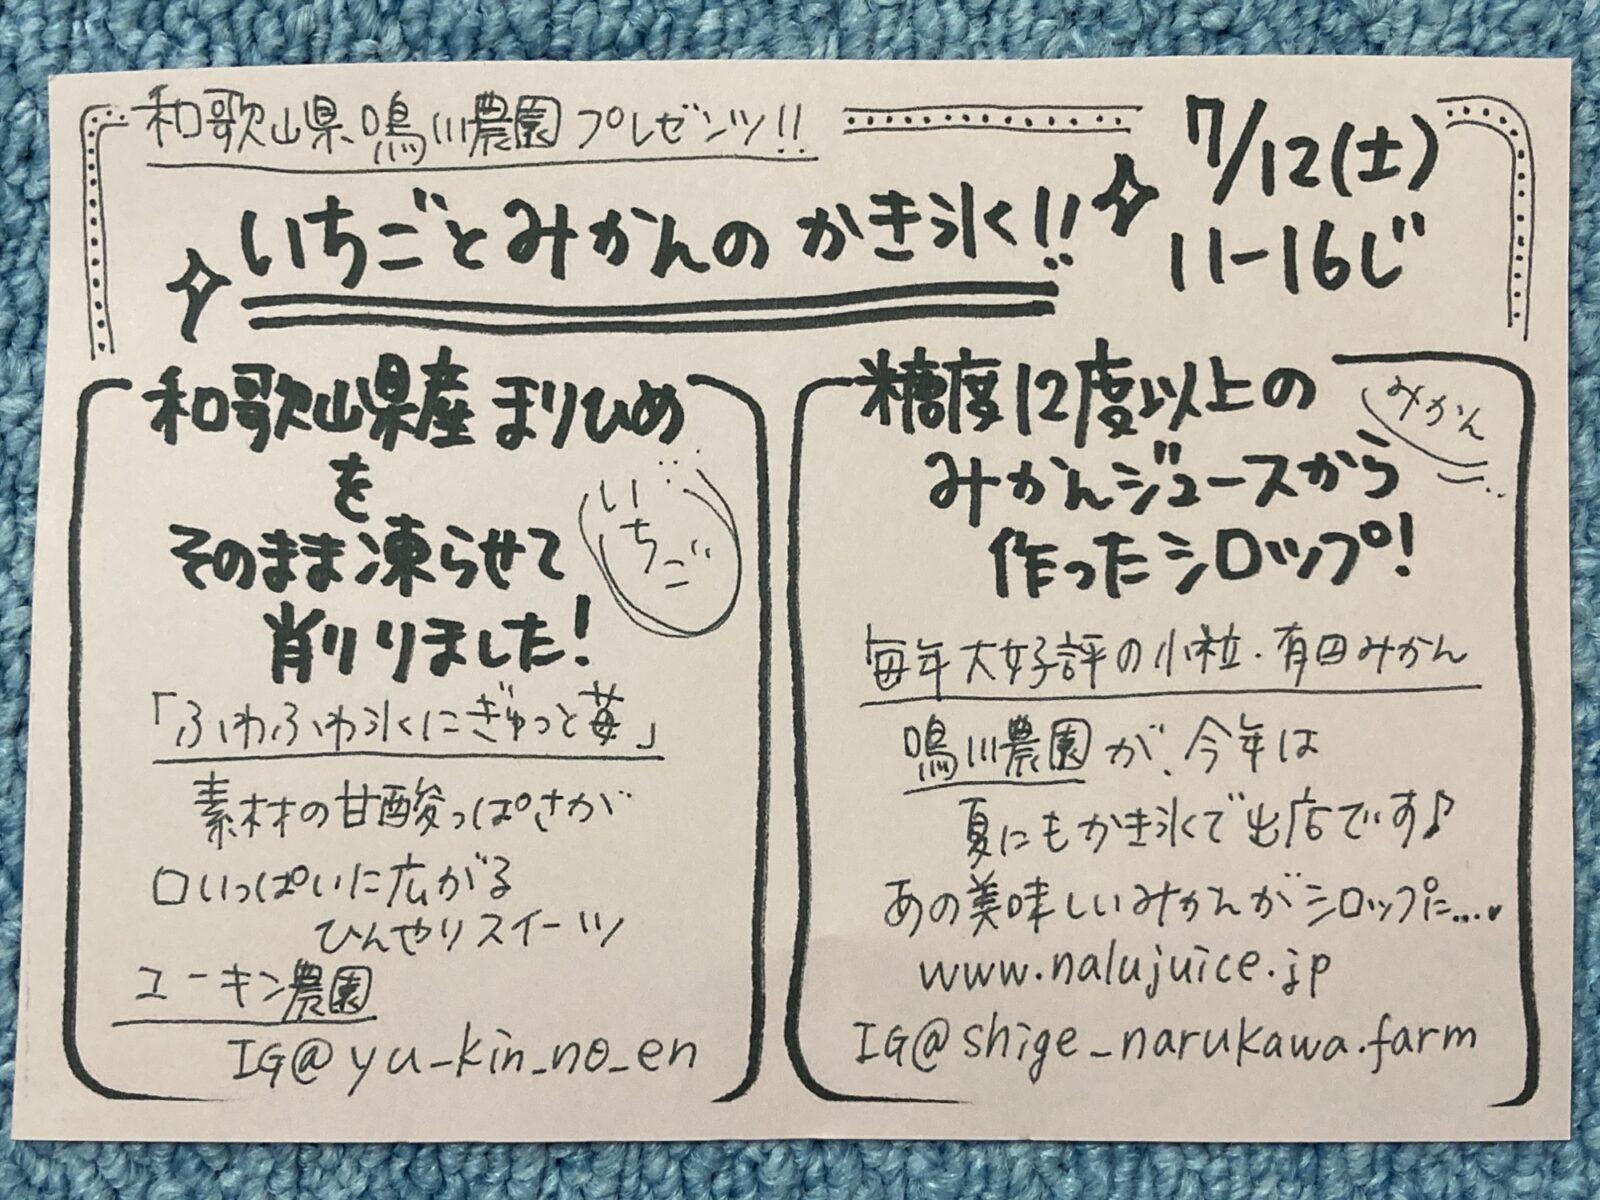 和歌山県鳴川農園プレゼンツ!!
いちごとみかんのかき氷!!
7/12(土)
11-16じ
和歌山県産まりひめ
を
そのまま凍らせて
削りました!
いちご
「ふわふわ氷にぎゅっと苺」
素材の甘酸っぱさが
口いっぱいに広がる
ひんやりスイーツ
ユーキン農園
IG@yu_kin_no_en
糖度12度以上の
みかんジュースから
作ったシロップ!
みかん
毎年大好評の小粒・有田みかん
鳴川農園が、今年は
夏にもかき氷で出店です♪
あの美味しいみかんがシロップに...♥
www.nalujuice.jp
IG@shige_narukawa.farm